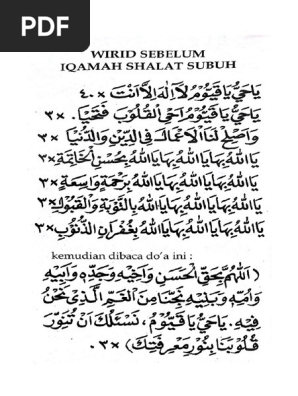 PDF
WIRID SEBELUM
IQAMAH SHALAT SUBUH
يَاحَيُّ يَاقَيُّوْمُ لَآ اِلٰهَ اِلَّآ اَنْتَ ×٤٠
يَاحَيُّ يَاقَيُّوْمُ اَحْيِ الْقُلُوْبَ تَحْيَا. ×٣
وَاَصْلِحْ لَنَا الْاَعْمَالَ فِي الدِّيْنِ وَالدُّنْيَا ×٣
يَااَللهُ بِهَا يَااَللهُ بِهَا يَااَللهُ بِحُسْنِ الْخَاتِمَةِ ×٣
يَااَللهُ بِهَا يَااَللهُ بِهَا يَااَللهُ بِرَحْمَةٍ وَاسِعَةٍ ×٣
يَااَللهُ بِهَا يَااَللهُ بِهَا يَااَللهُ بِالتَّوْبَةِ وَالْقَبُوْلِ ×٣
يَااَللهُ بِهَا يَااَللهُ بِهَا يَااَللهُ بِغُفْرَانِ الذُّنُوْبِ ×٣
kemudian dibaca do'a ini :
( اَللّٰهُمَّ بِحَقِّ الْحَسَنِ وَاَخِيْهِ وَجَدِّهِ وَاَبِيْهِ
وَاُمِّهِ وَبَنِيْهِ نَجِّنَا مِنَ الْغَمِّ الَّذِيْ نَحْنُ
فِيْهِ. يَاحَيُّ يَاقَيُّوْمُ، نَسْئَلُكَ اَنْ تُنَوِّرَ
قُلُوْبَنَا بِنُوْرِ مَعْرِفَتِكَ ) ×٣.